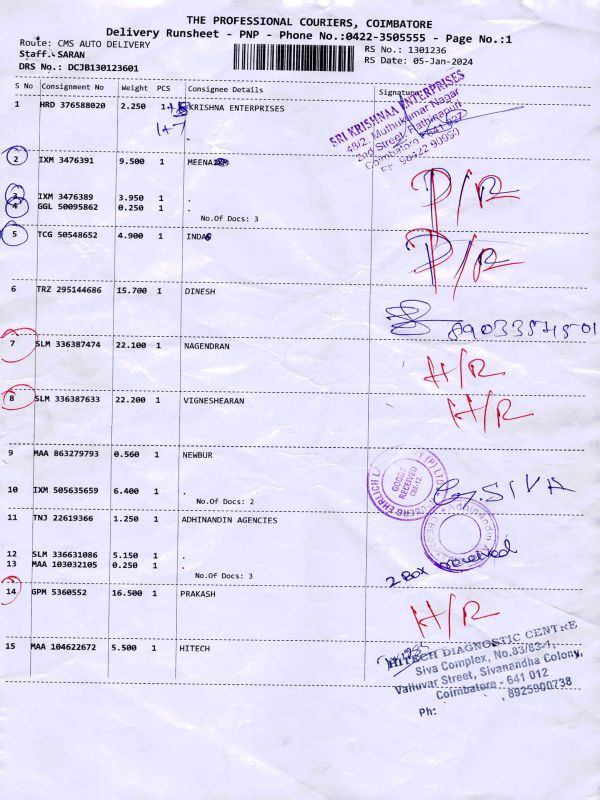 THE PROFESSIONAL COURIERS, COIMBATORE
Delivery Runsheet - PNP - Phone No.:0422-3505555 - Page No.:1
Route: CMS AUTO DELIVERY
RS No.: 1301236
Staff.: SARAN
RS Date: 05-Jan-2024
DRS No.: DCJB130123601
S No Consignment No Weight PCS Consignee Details Signature
1 HRD 376588020 2.250 1+ KRISHNA ENTERPRISES
1+7
SRI KRISHNAA ENTERPRISES
48/2, Muthukumar Nagar
2nd Street, Rathinapuri
Coimbatore
2 IXM 3476391 9.500 1 MEENA
3 IXM 3476389 3.950 1 .
4 GGL 50095862 0.250 1 .
No.Of Docs: 3
P/R
5 TCG 50548652 4.900 1 INDA
P/R
6 TRZ 295144686 15.700 1 DINESH
7 SLM 336387474 22.100 1 NAGENDRAN
H/R
8 SLM 336387633 22.200 1 VIGNESHEARAN
H/R
9 MAA 863279793 0.560 1 NEWBUR
GOODS
RECEIVED
10 IXM 505635659 6.400 1 .
No.Of Docs: 2
SIVA
11 TNJ 22619366 1.250 1 ADHINANDIN AGENCIES
12 SLM 336631086 5.150 1 .
13 MAA 103032105 0.250 1 .
No.Of Docs: 3
2 Box received
14 GPM 5360552 16.500 1 PRAKASH
H/R
15 MAA 104622672 5.500 1 HITECH
HITECH DIAGNOSTIC CENTRE
Siva Complex, No.83/83-1,
Valluvar Street, Sivanandha Colony,
Coimbatore - 641 012
Ph: , 8925900738